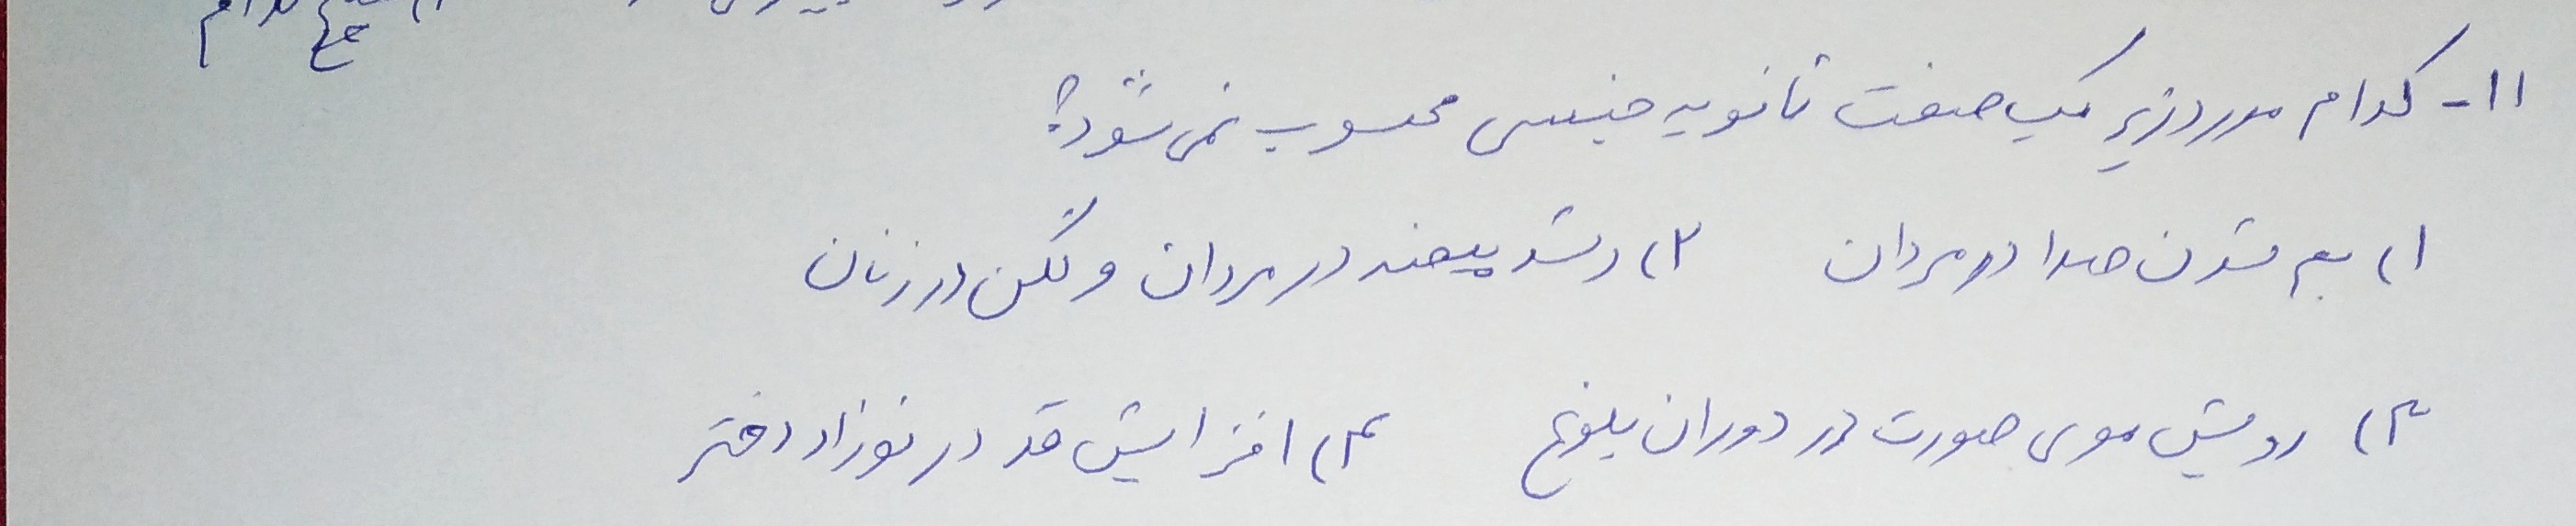 هیچ کدام
۱۱- کدام مورد زیر یک صفت ثانویه جنسی محسوب نمی شود؟
۱) بم شدن صدا در مردان ۲) رشد بیضه در مردان و لگن در زنان
۳) رویش موی صورت در دوران بلوغ ۴) افزایش قد در نوزاد دختر